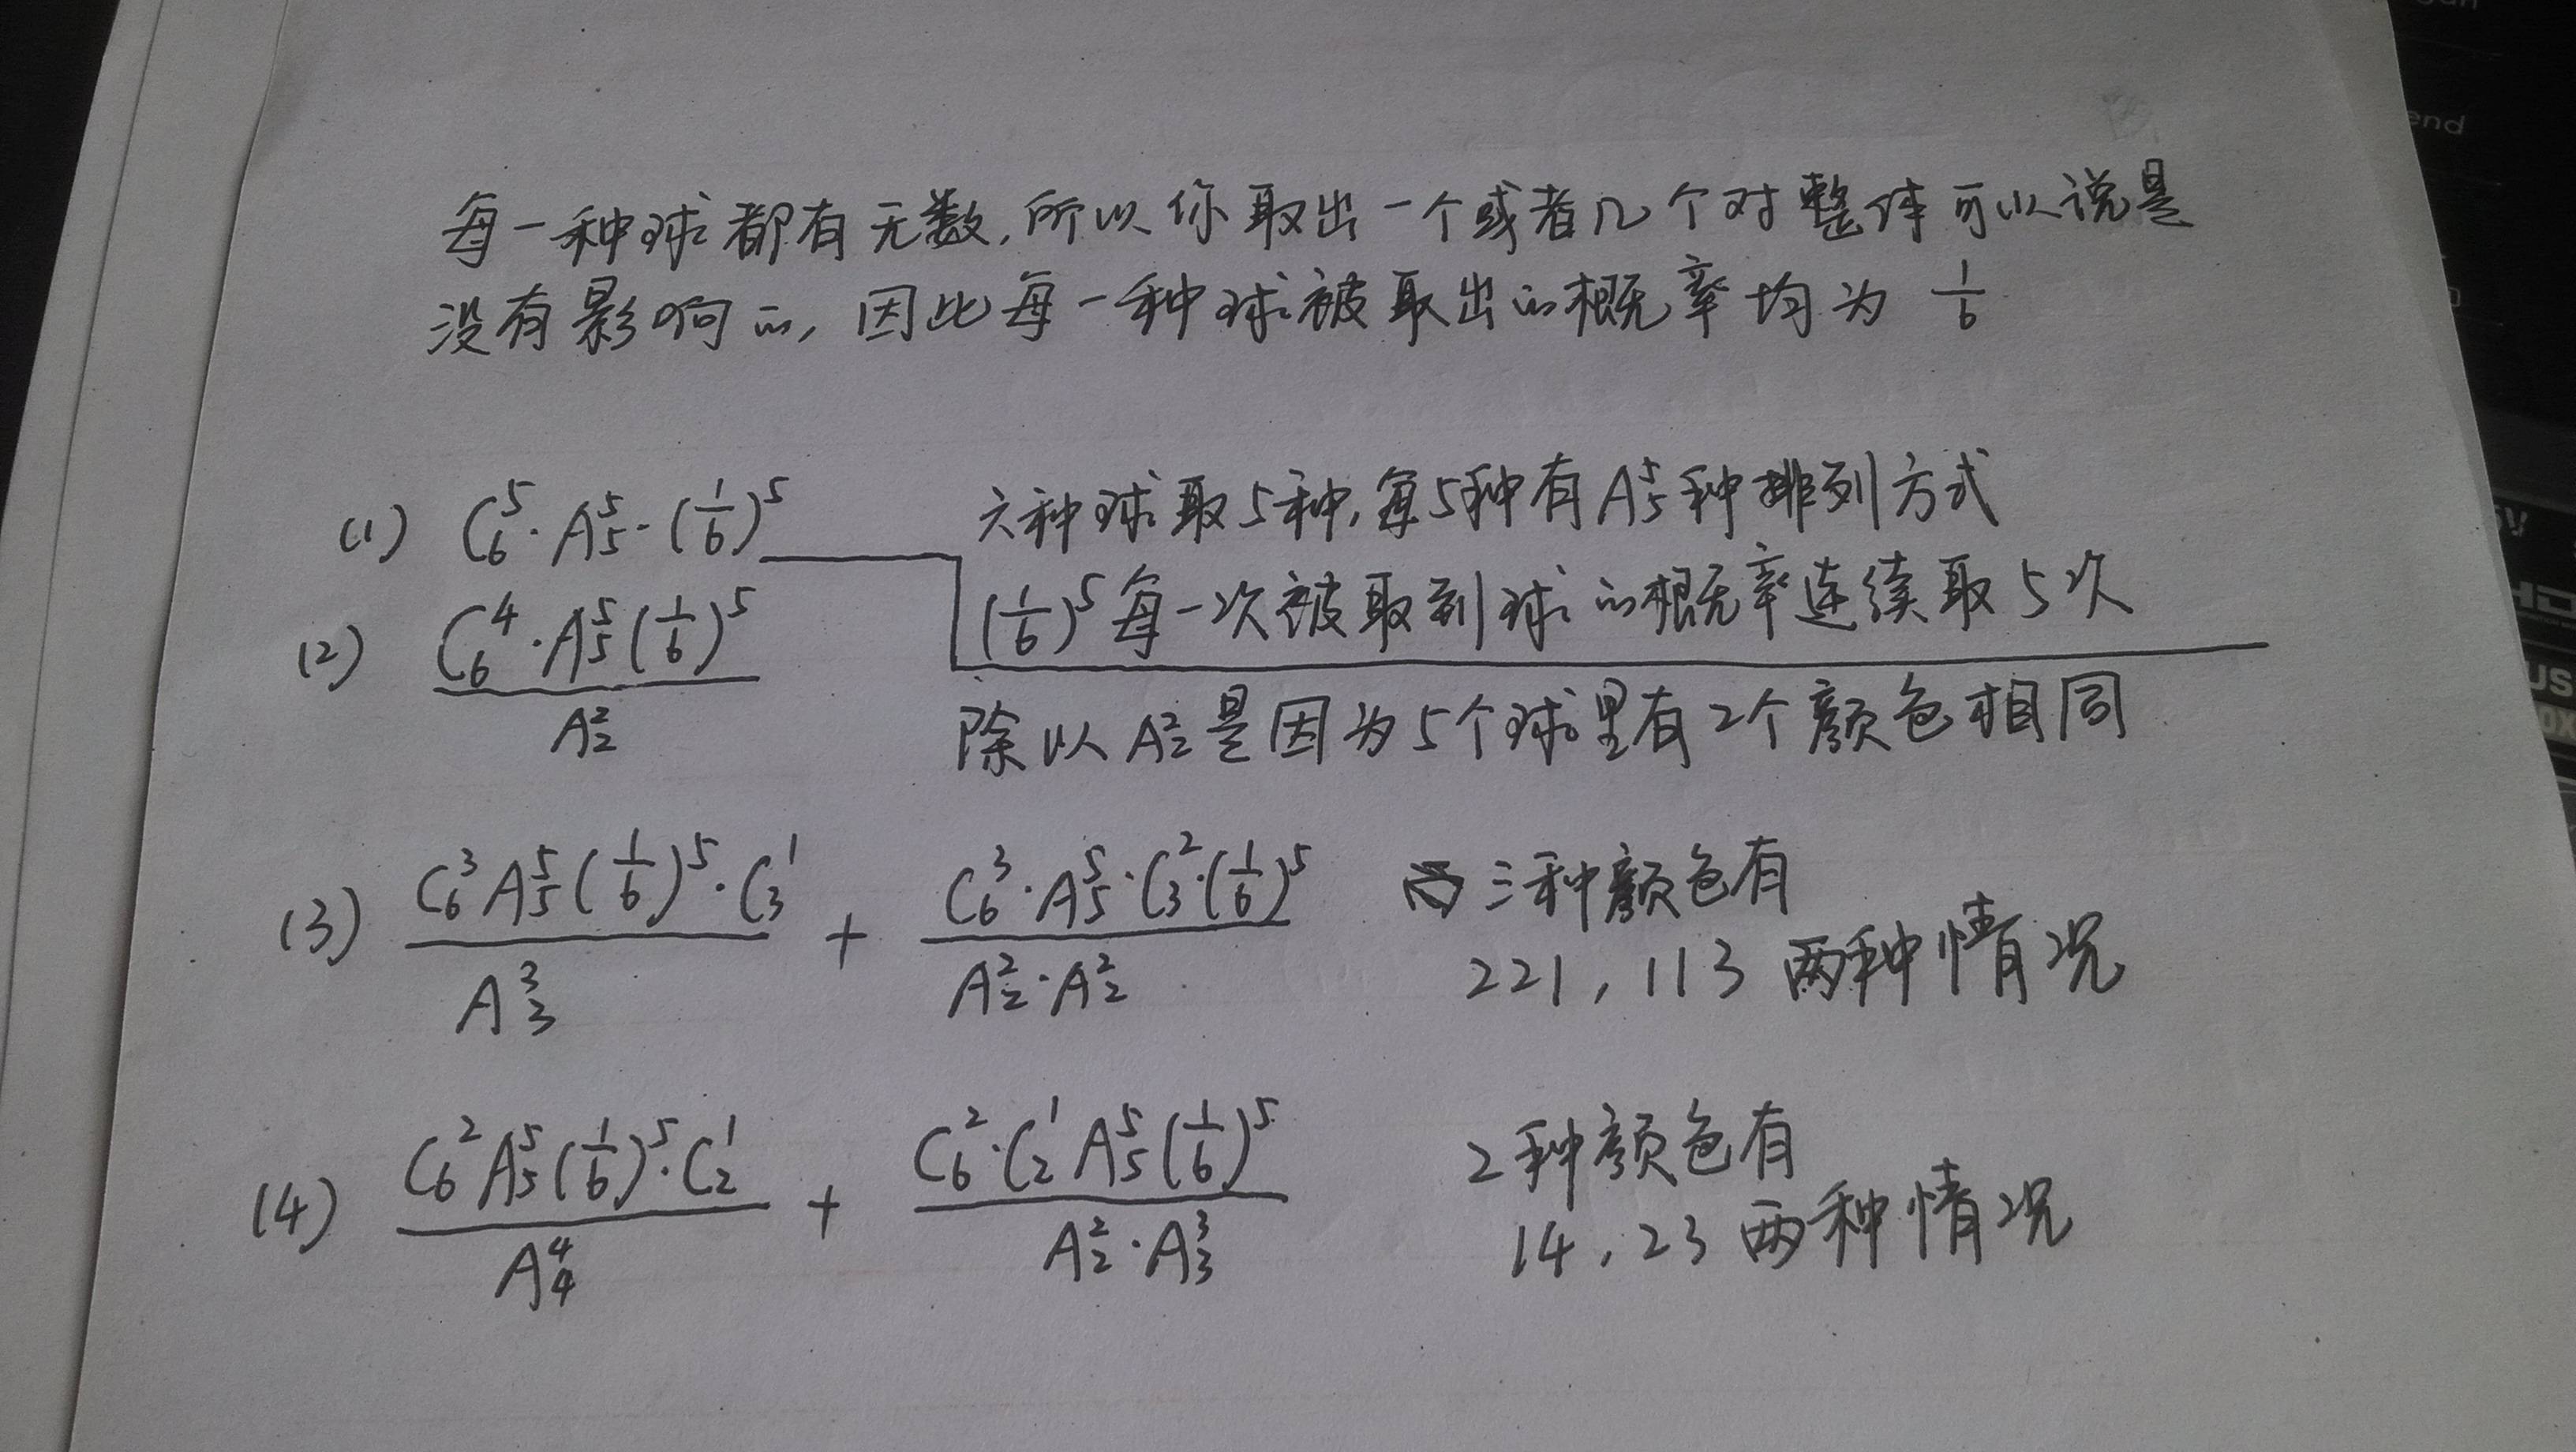 每一种球都有无数,所以你取出一个或者几个对整体可以说是
没有影响的,因此每一种球被取出的概率均为 1/6
(1) C₆⁵·A₅⁵·(1/6)⁵
六种球取5种,每5种有A₅⁵种排列方式
(1/6)⁵每一次被取到球的概率连续取5次
(2) C₆⁴·A₅⁵(1/6)⁵ / A₂²
除以A₂²是因为5个球里有2个颜色相同
(3) C₆³A₅⁵(1/6)⁵·C₃¹ / A₃³ + C₆³·A₅⁵·C₃²·(1/6)⁵ / A₂²·A₂²
三种颜色有
221,113两种情况
(4) C₆²A₅⁵(1/6)⁵·C₂¹ / A₄⁴ + C₆²·C₂¹A₅⁵(1/6)⁵ / A₂²·A₃³
2种颜色有
14,23两种情况
end
US